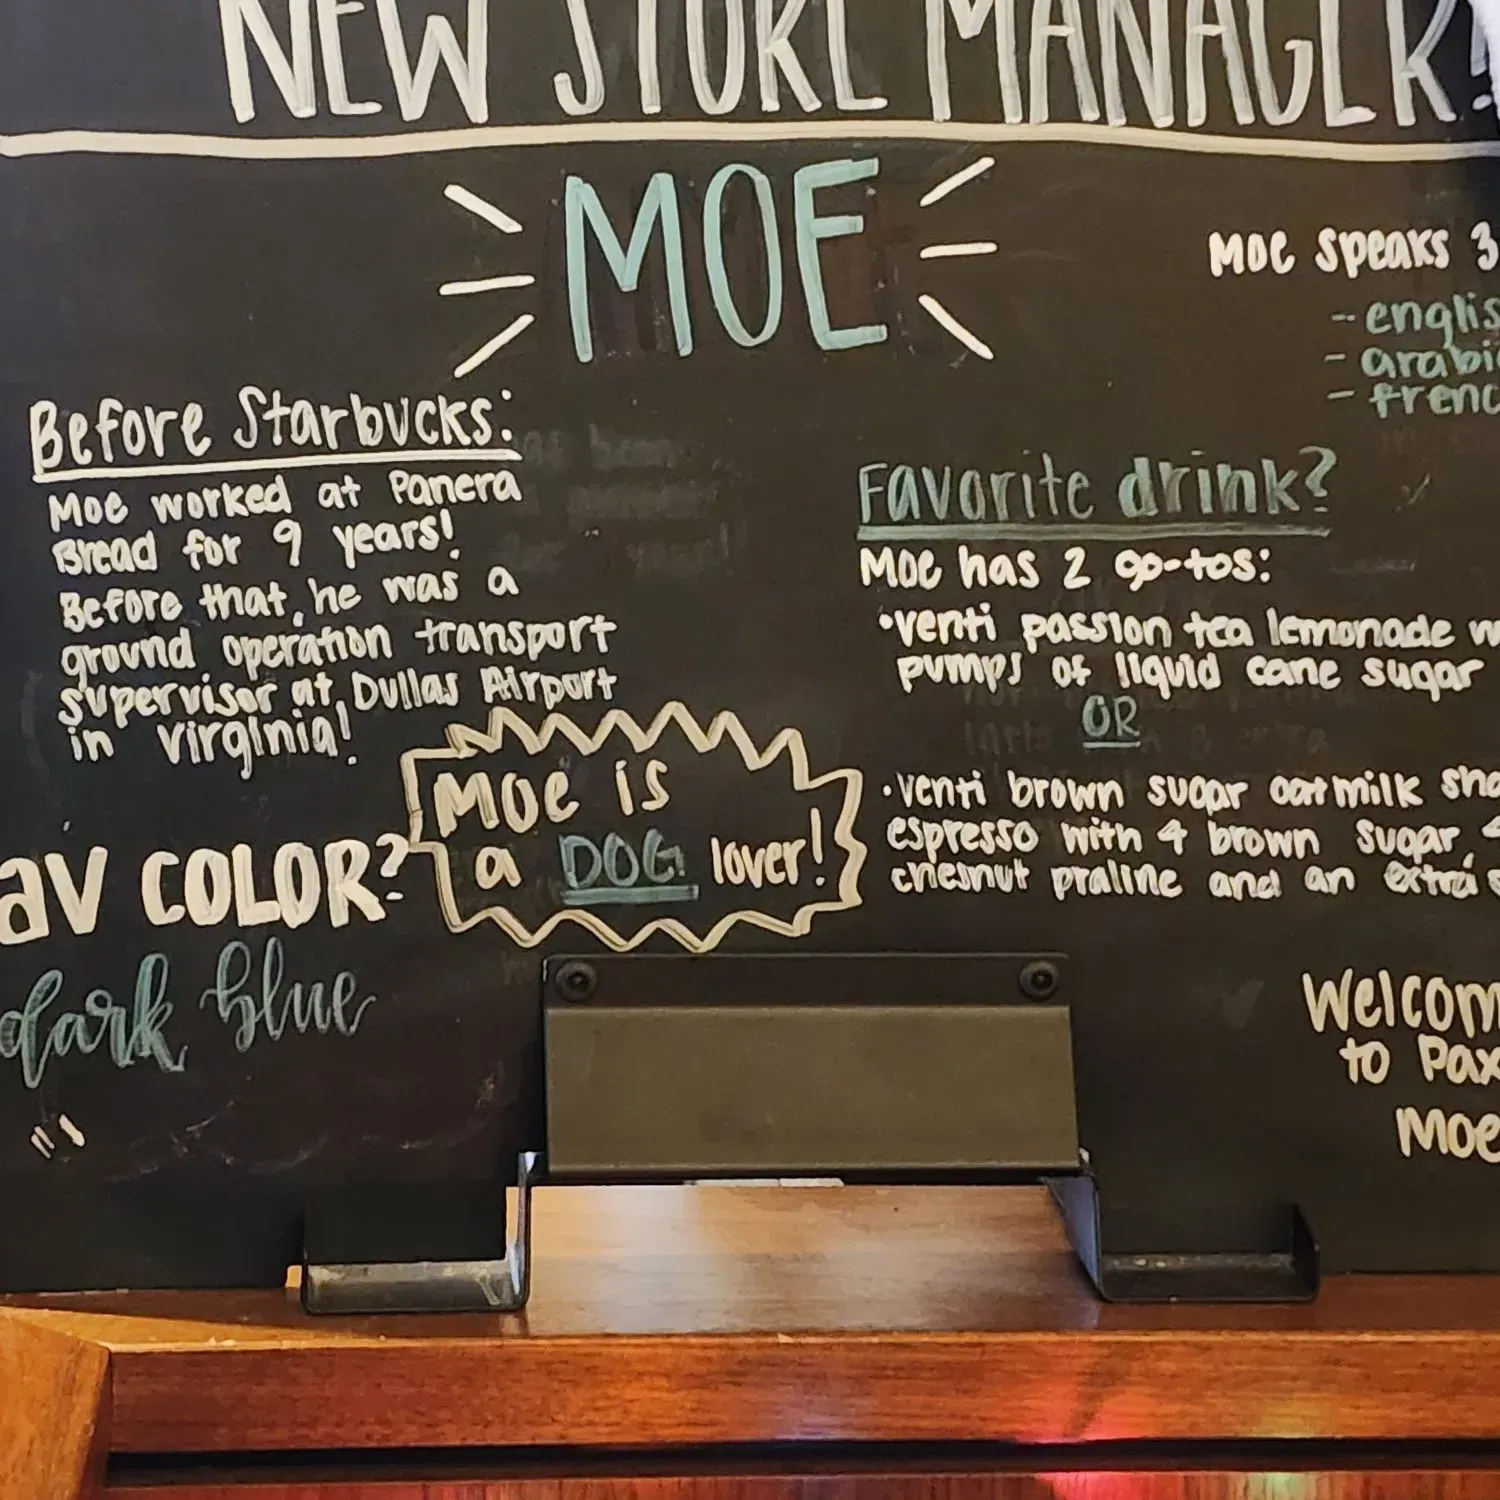 NEW STORE MANAGER!
MOE
Moe speaks 3
- englis
- arabi
- frenc
Before Starbucks:
Moe worked at Panera
Bread for 9 years!
Before that, he was a
ground operation transport
supervisor at Dullas Airport
in Virginia!
Favorite drink?
Moe has 2 go-tos:
•venti passion tea lemonade w
pumps of liquid cane sugar
OR
•venti brown sugar oatmilk sha
espresso with 4 brown sugar, 4
chesnut praline and an extra s
Moe is
a DOG lover!
av COLOR?
dark blue
Welcom
to Pax
Moe